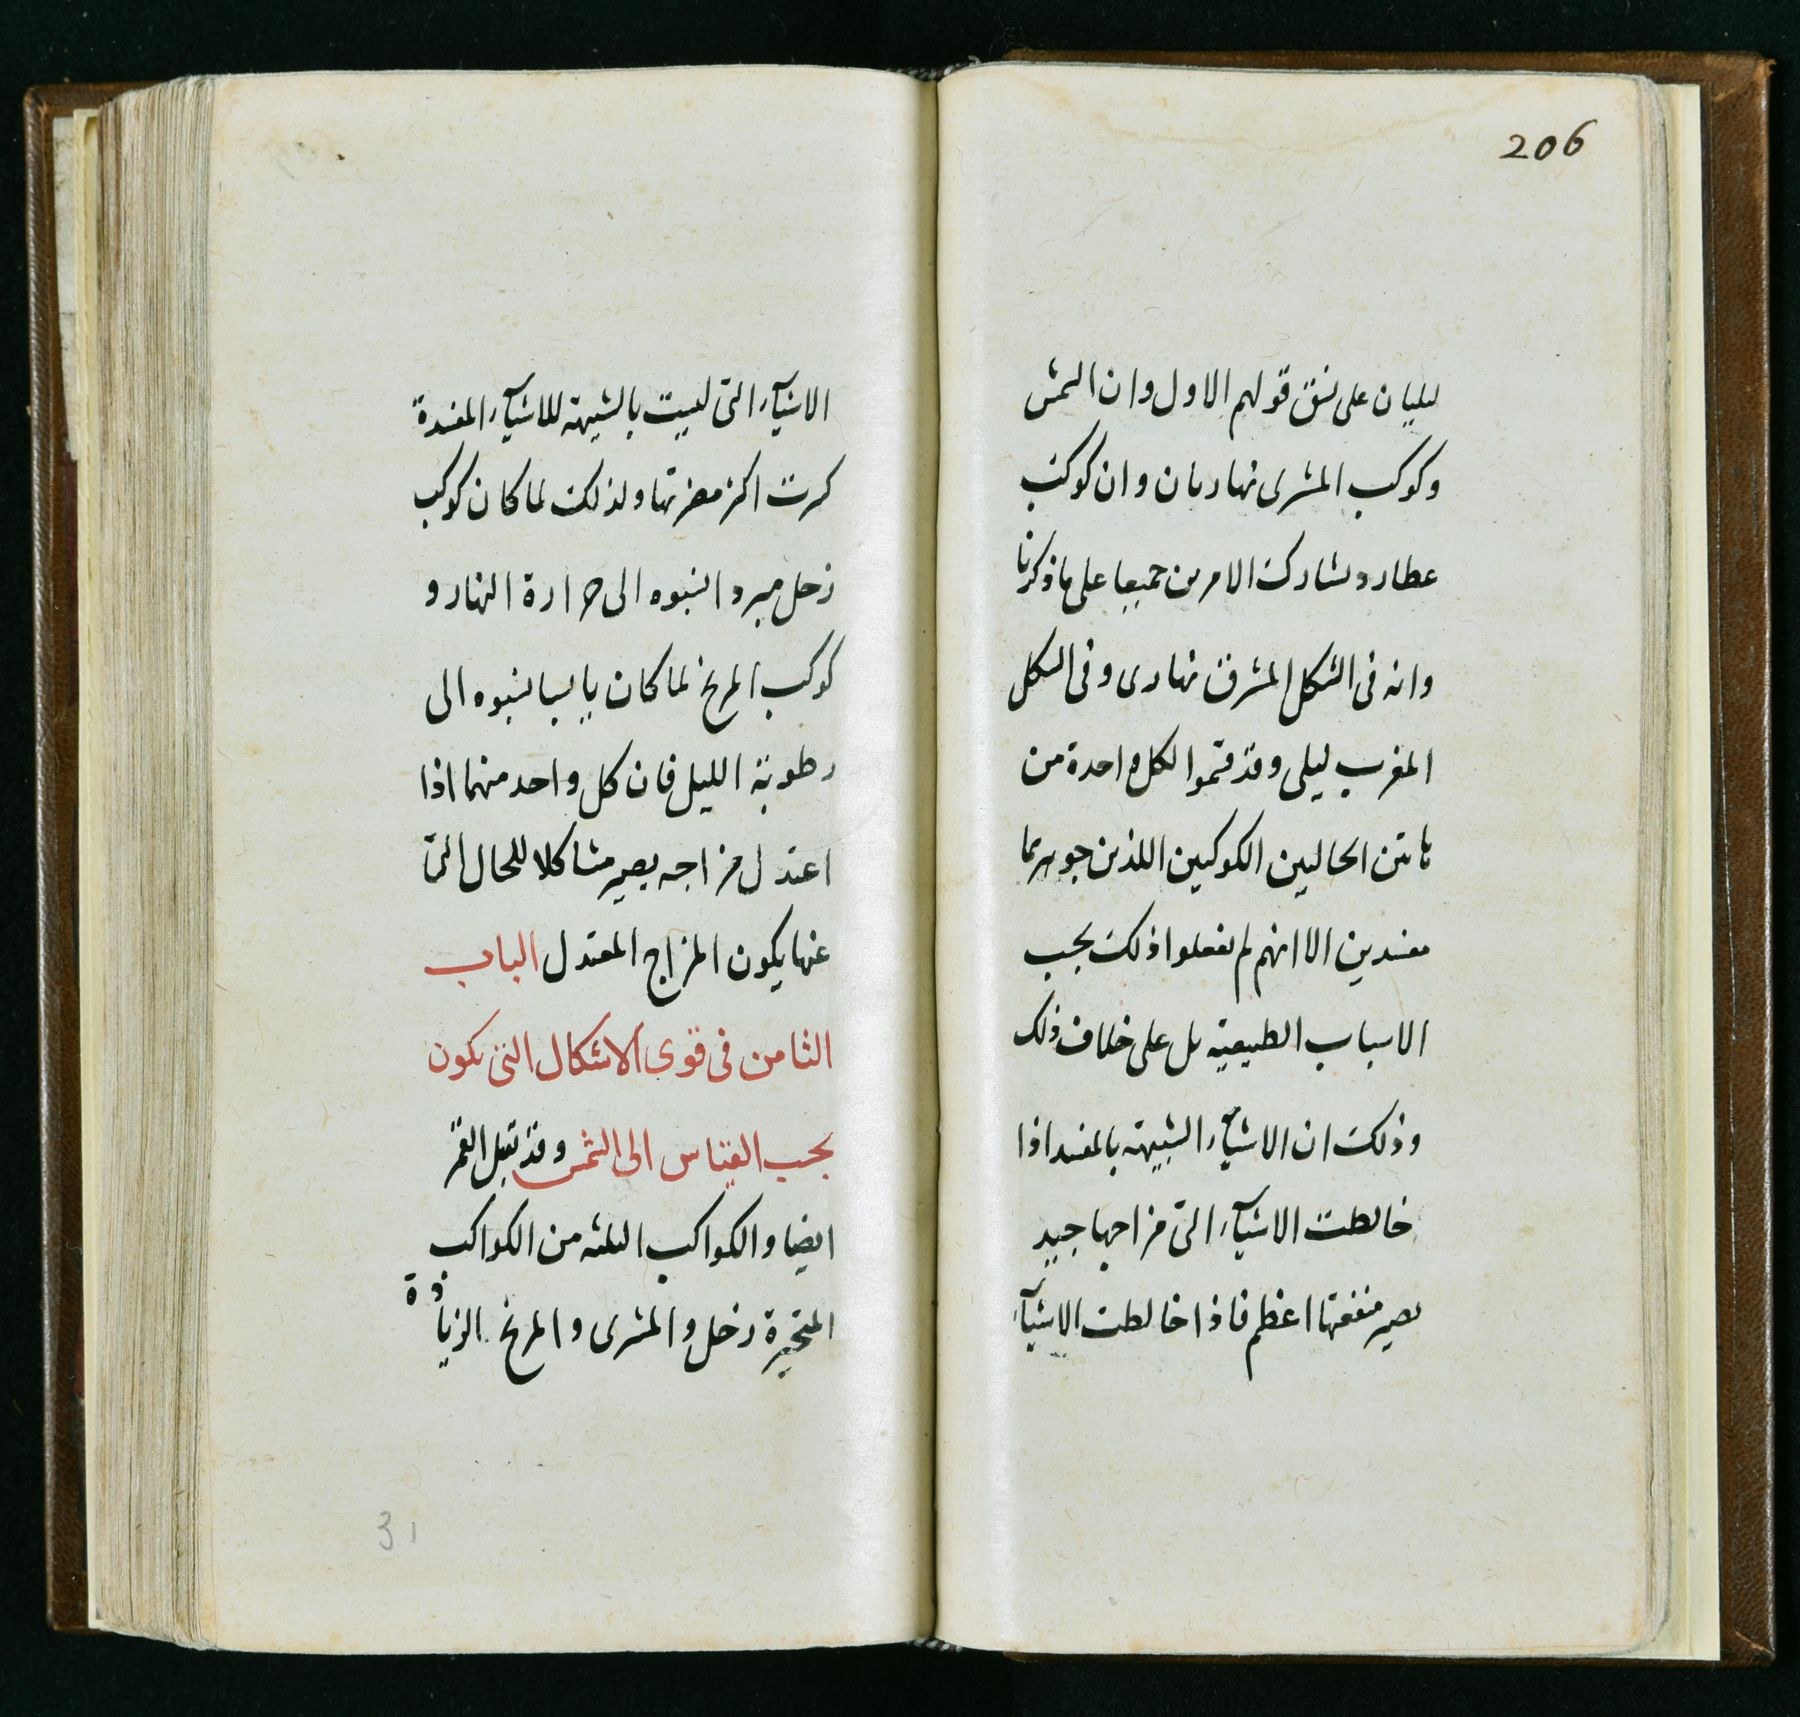 206
ليليان على نسق قولهم الاول وان الشمس
وكوكب المشرى نهاريان وان كوكب
عطارد يشارك الامرين جميعا على ما ذكرنا
وانه فى الشكل المشرق نهارى وفى الشكل
المغرب ليلى وقد قسموا لكل واحدة من
هاتين الحالين الكوكبين اللذين جوهرهما
مفسدين الا انهم لم يفعلوا ذلك بحسب
الاسباب الطبيعية بل على خلاف ذلك
وذلك ان الاشيآء الشبيهة بالمفسد اذا
خالطت الاشيآء التى مزاجها جيد
يصير منفعتها اعظم فاذا خالطت الاشيآء
الاشيآء التى ليست بالشبيهة للاشيآء المفسدة
كسرت اكثر مضرتها ولذلك لما كان كوكب
زحل مبردا نسبوه الى حرارة النهار و
كوكب المريخ لما كان يابسا نسبوه الى
رطوبة الليل فان كل واحد منهما اذا
اعتدل مزاجه يصير مشاكلا للحال التى
عنها يكون المزاج المعتدل الباب
الثامن فى قوى الاشكال التى تكون
بحسب القياس الى الشمس وقد تقبل القمر
ايضا والكواكب الثلثه من الكواكب
المتحيرة زحل والمشرى والمريخ الزيادة
31